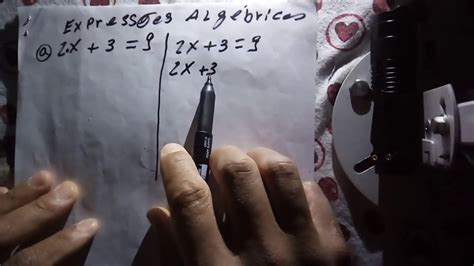 Expressões Algébricas
a) 2x + 3 = 9
2x + 3 = 9
2x + 3